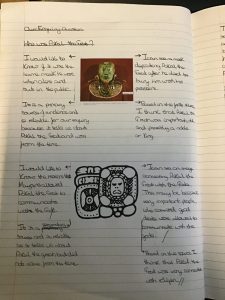 Our Enquiry Question
Who was Pakal the Great?
I would like to
know if it was the
same mask he wore
when alive and
out in the public.
I can see a mask
depicting Pakal the
Great after he died to
bury him with his
It is a primary
source of evidence and
is reliable for our enquiry
because it tells us about
Pakal the Great and was
from the time.
Based on the first source
I think that Pakal is
an important
and possibly a noble
or King.
I would like to
know the reason
Mayans allowed
Pakal the Great to
communicate
with the Gods.
I can see an image
someone Pakal the
Great with the Gods.
This may be because
very important people,
who
were allowed to
communicate with the
gods.
It is a
source and is reliable
as it tells us about
Pakal the great and did
date from the time.
Based on this source I
think that Pakal the
Great was very connected
with religion.